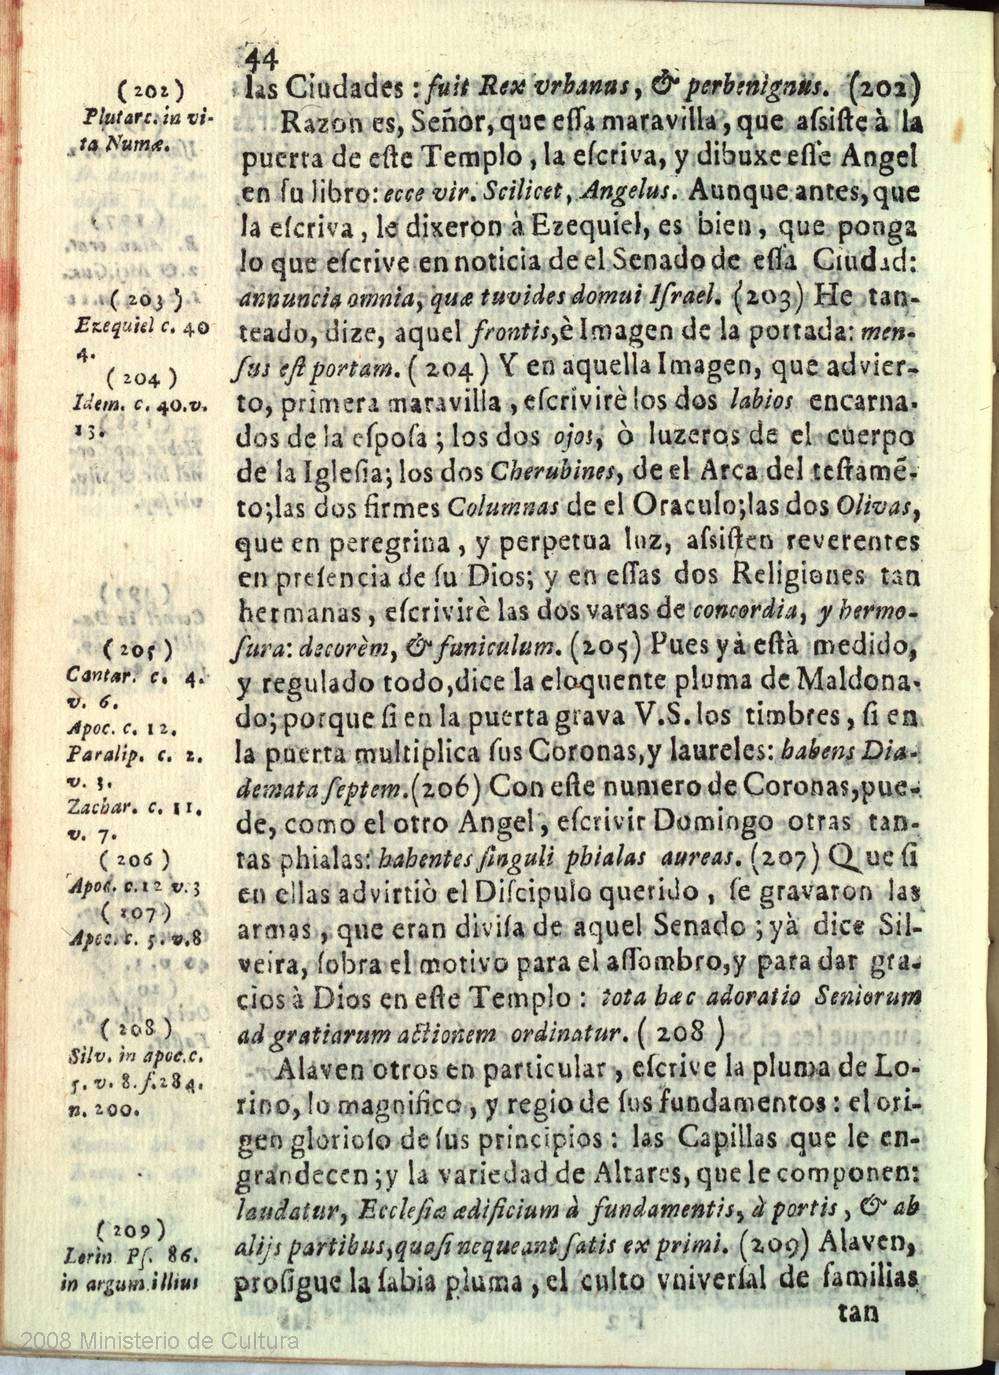 44
las Ciudades : fuit Rex vrbanus, & perbenignus. (202)
Razon es, Señor, que eſſa maravilla, que aſsiſte à la
puerta de eſte Templo, la eſcriva, y dibuxe eſſe Angel
en ſu libro: ecce vir. Scilicet, Angelus. Aunque antes, que
la eſcriva, le dixeron à Ezequiel, es bien, que ponga
lo que eſcrive en noticia de el Senado de eſſa Ciudad:
annuncia omnia, quæ tu vides domui Iſrael. (203) He tan-
teado, dize, aquel frontis, è Imagen de la portada: men-
ſus eſt portam. (204) Y en aquella Imagen, que advier-
to, primera maravilla, eſcrivirè los dos labios encarna-
dos de la eſpoſa; los dos ojos, ò luzeros de el cuerpo
de la Igleſia; los dos Cherubines, de el Arca del teſtamẽ-
to; las dos firmes Columnas de el Oraculo; las dos Olivas,
que en peregrina, y perpetua luz, aſsiſten reverentes
en preſencia de ſu Dios; y en eſſas dos Religiones tan
hermanas, eſcrivirè las dos varas de concordia, y hermo-
ſura: decorèm, & funiculum. (205) Pues yà eſtà medido,
y regulado todo, dice la eloquente pluma de Maldona-
do; porque ſi en la puerta grava V.S. los timbres, ſi en
la puerta multiplica ſus Coronas, y laureles: habens Dia-
demata ſeptem. (206) Con eſte numero de Coronas, pue-
de, como el otro Angel, eſcrivir Domingo otras tan-
tas phialas: habentes ſinguli phialas aureas. (207) Que ſi
en ellas advirtiò el Diſcipulo querido, ſe gravaron las
armas, que eran diviſa de aquel Senado; yà dice Sil-
veira, ſobra el motivo para el aſſombro, y para dar gra-
cios à Dios en eſte Templo: tota hæc adoratio Seniorum
ad gratiarum actionem ordinatur. (208)
Alaven otros en particular, eſcrive la pluma de Lo-
rino, lo magnifico, y regio de ſus fundamentos: el ori-
gen glorioſo de ſus principios: las Capillas que le en-
grandecen; y la variedad de Altares, que le componen:
laudatur, Eccleſiæ ædificium à fundamentis, à portis, & ab
alijs partibus, quaſi nequeant ſatis exprimi. (209) Alaven,
proſigue la ſabia pluma, el culto vniverſal de familias
tan
(202)
Plutarc. in vi-
ta Numæ.
(203)
Ezequiel c. 40
4.
(204)
Idem. c. 40. v.
13.
(205)
Cantar. c. 4.
v. 6.
Apoc. c. 12.
Paralip. c. 2.
v. 3.
Zachar. c. 11.
v. 7.
(206)
Apoc. c. 12 v. 3
(207)
Apoc. c. 5. v. 8
(208)
Silv. in apoc. c.
5. v. 8. f. 284.
n. 200.
(209)
Lorin Pſ. 86.
in argum. illius
2008 Ministerio de Cultura